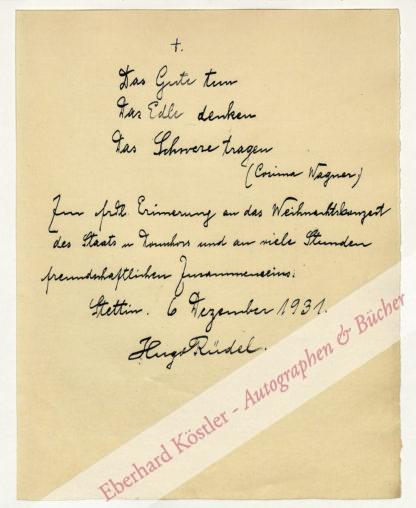 +.
Das Gute tun
Das Edle denken
Das Schwere tragen
(Cosima Wagner)
Zum frdl. Erinnerung an das Weihnachtskonzert
des Staats u Domchors und an viele Stunden
freundschaftlichen Zusammenseins.
Stettin. 6 Dezember 1931.
Hugo Rüdel.
Eberhard Köstler - Autographen & Bücher